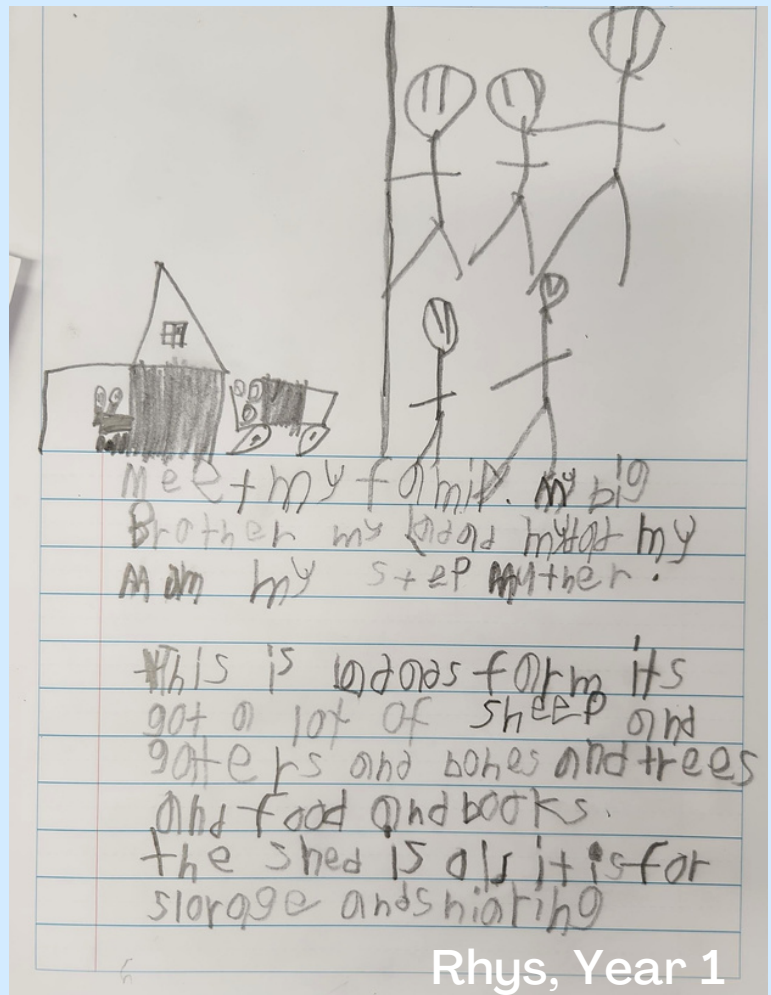 Meet my famil. My big
Brother my my
Mam my step muther.
This is farm its
got a lot of sheep and
gaters and bones and trees
and food and books.
the shed is old it is for
storage and
Rhys, Year 1